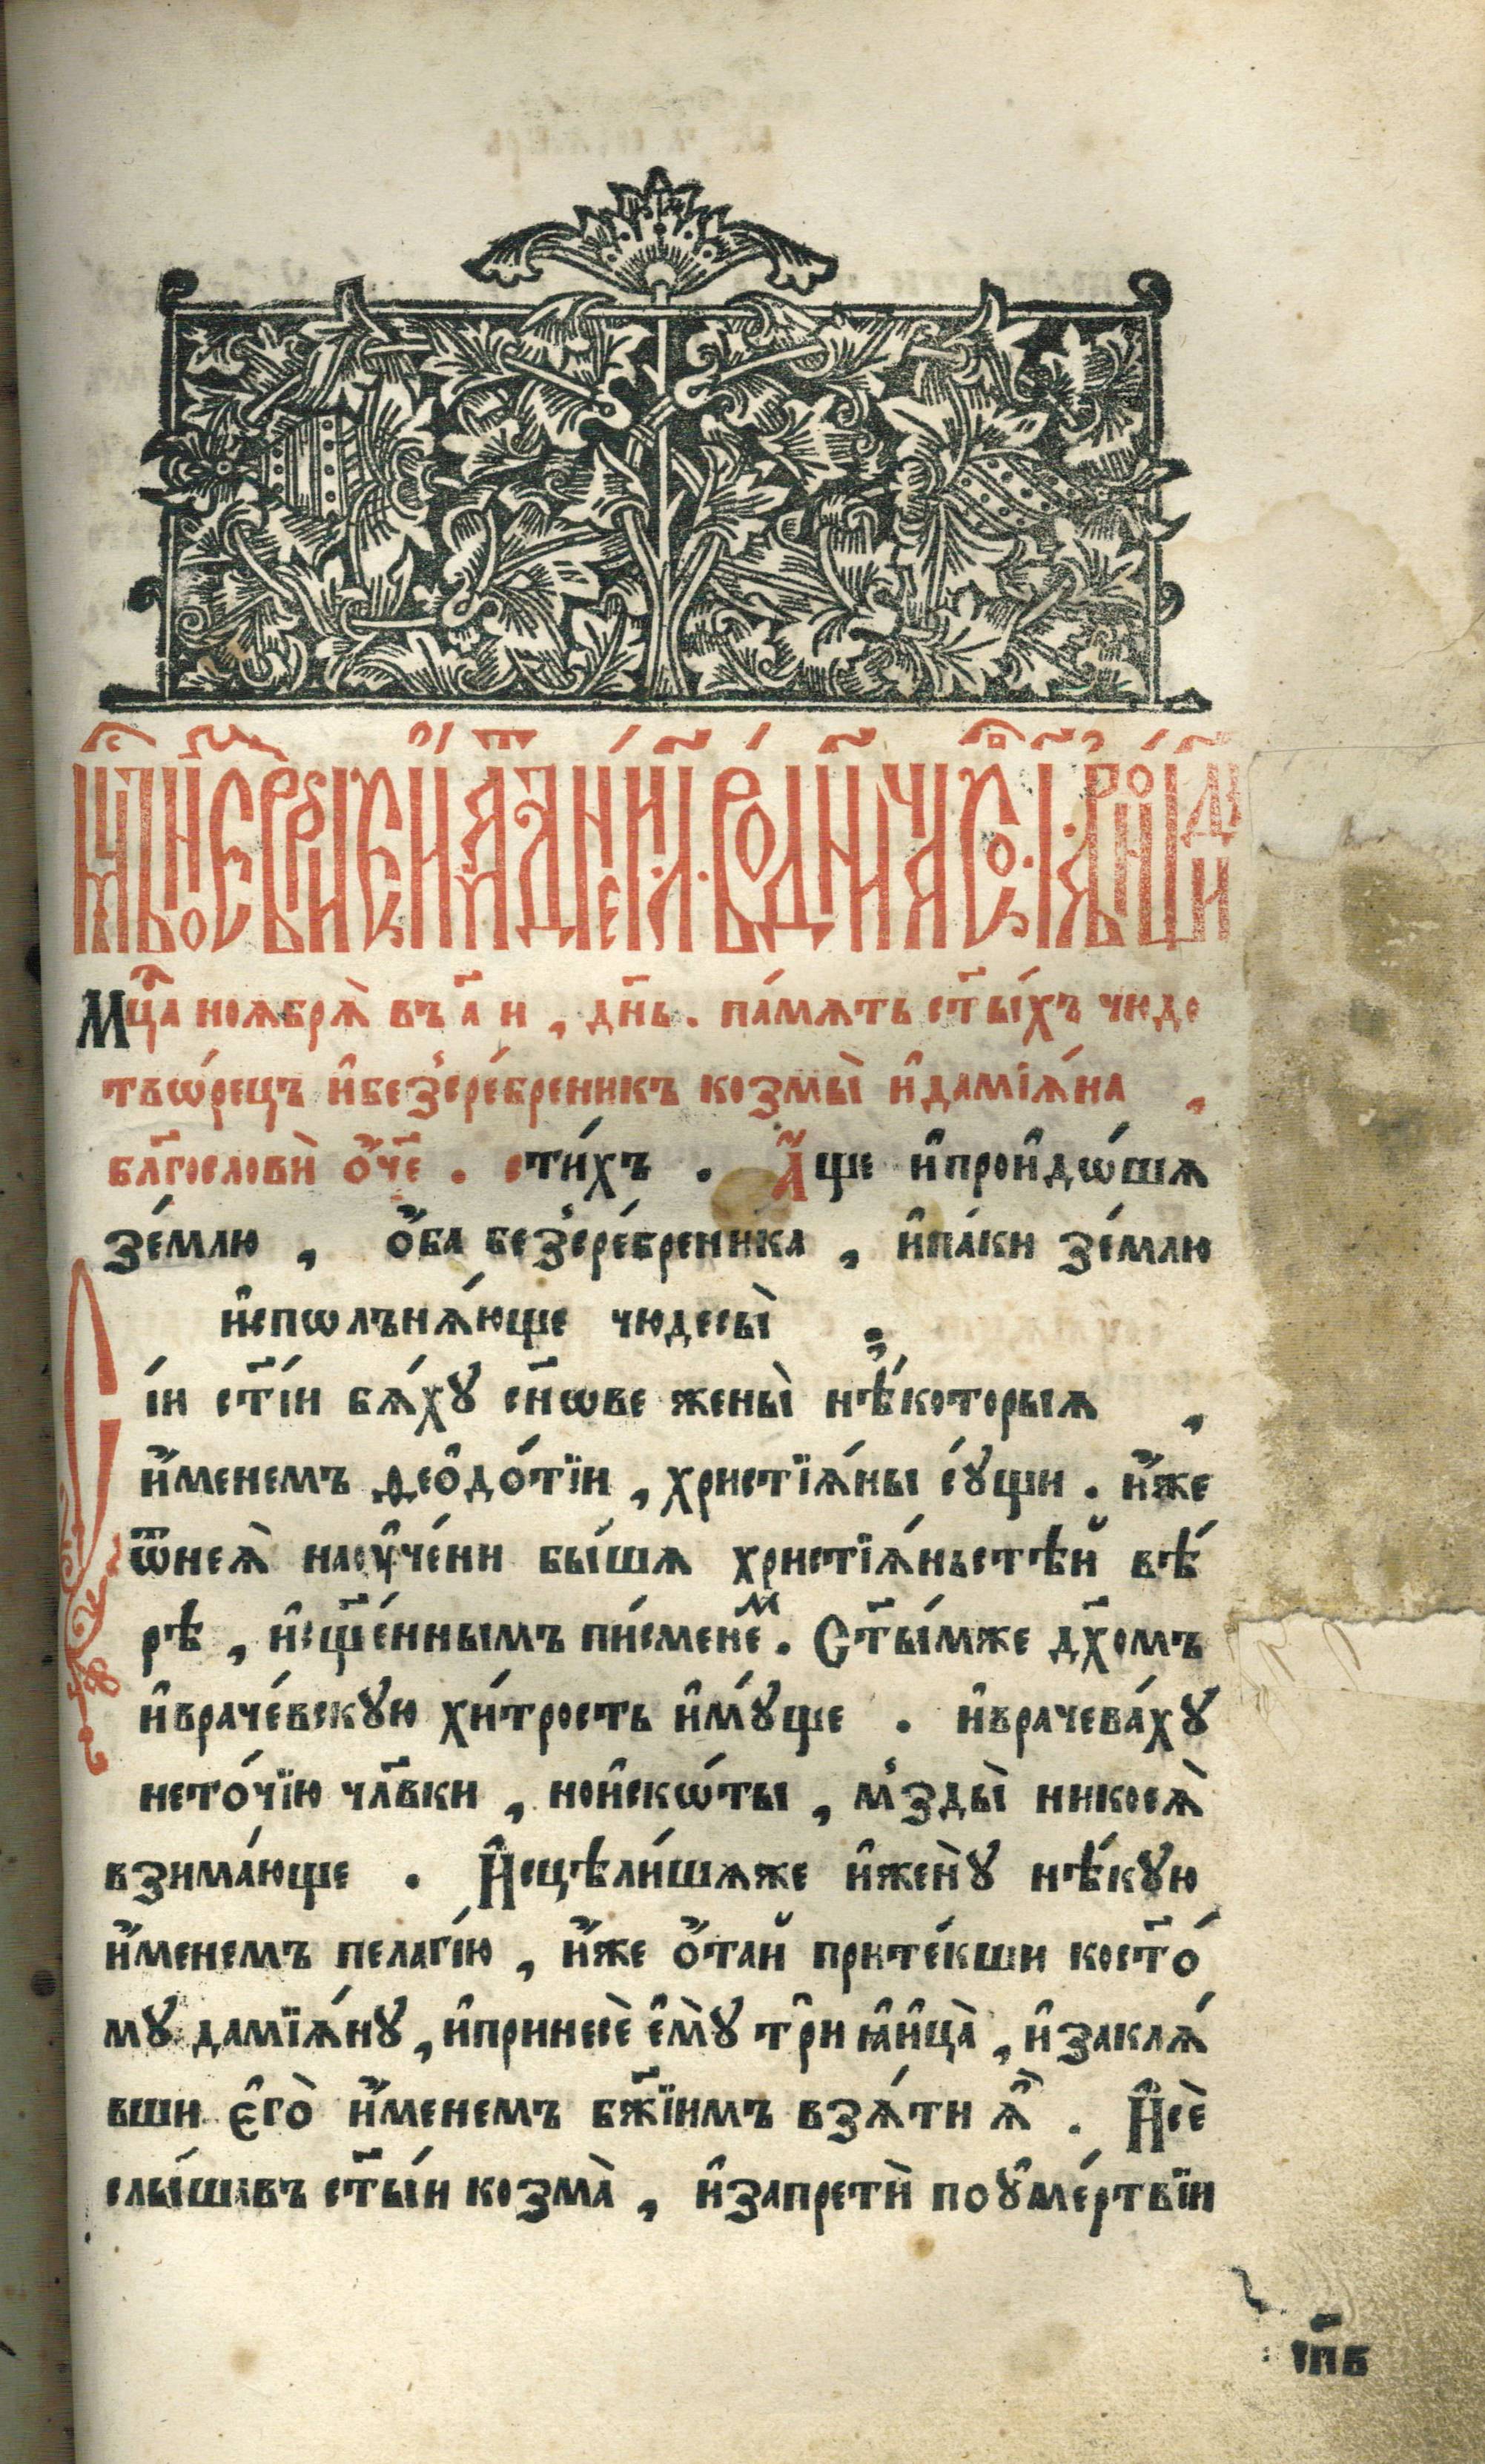 Мцⷭ҇ъ ноѧ́брь и҆мѣ́ѧ дні́й, л҃. въ дн҃и часо́въ, ѳ҃.
Мцⷭ҇а ноѧбрѧ̀ въ а҃ н , дн҃ь . па́мѧть ст҃ы́хъ чюдо
тво́рецъ и҆без̾сре́бреникъ козмы̀ и҆дамїѧ́на ,
бл҃гословѝ ѻ҆́ч҃е . сти́хъ . А҆́ще и҆прои҆дѡ́шѧ
зе́млю , ѻ҆́ба без̾сре́бреника , и҆па́ки зе́млю
и҆сполънѧ́юще чюдесы̀
Сі́и ст҃і́и бѧ́хꙋ сн҃ове жены̀ нѣ́которыѧ ,
и҆́менемъ Ѳео҆до́тїи , христїѧ́ны сꙋ́щи . и҆́же
ѿнеѧ̀ наѹче́ни бы́шѧ христїѧ́ньстѣй вѣ́
рѣ , и҆сщ҃е́ннымъ пи́сменемⷨ . Ст҃ы́мже дх҃омъ
и҆враче́вскꙋю хи́трость и҆мꙋ́ще . и҆врачева́хꙋ
нето́чїю чл҃вки , нои҆скѡ́ты , м̾зды̀ никоеѧ̀
взима́юще . И҆сцѣли́шѧже и҆женꙋ̀ нѣ́кꙋю
и҆́менемъ пелагі́ю , и҆́же ѻ҆́тай прите́кши кост҃о́
мꙋ дамїѧ́нꙋ , и҆принесѐ є҆мꙋ̀ три ꙗ҆и҆ца̀ , и҆заклѧ́
вши є҆го̀ и҆́менемъ бж҃їимъ взѧ́ти ѧ҆̀ . И҆сѐ
слы́шавъ ст҃ы́и козма̀ , и҆запретѝ поꙋ҆ме́ртвїи
сп҃в